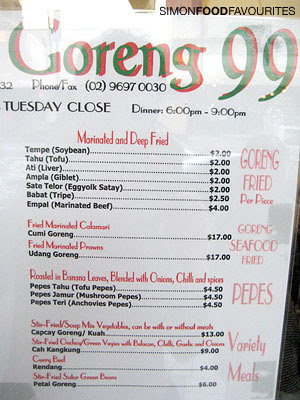 SIMONFOODFAVOURITES
Goreng 99
32 Phone/Fax (02) 9697 0030
TUESDAY CLOSE Dinner: 6:00pm - 9:00pm
Marinated and Deep Fried
Tempe (Soybean) $2.00
Tahu (Tofu) $2.00
Ati (Liver) $2.00
Ampla (Giblet) $2.00
Sate Telor (Eggyolk Satay) $2.00
Babat (Tripe) $2.50
Empal (Marinated Beef) $4.00
GORENG
FRIED
Per Piece
Fried Marinated Calamari
Cumi Goreng $17.00
Fried Marinated Prawns
Udang Goreng $17.00
GORENG
SEAFOOD
FRIED
Roasted in Banana Leaves, Blended with Onions, Chilli and spices
Pepes Tahu (Tofu Pepes) $4.50
Pepes Jamur (Mushroom Pepes) $4.50
Pepes Teri (Anchovies Pepes) $4.50
PEPES
Stir-Fried/Soup Mix Vegetables, can be with or without meats
Capcay Goreng/ Kuah $13.00
Stir-Fried Onchoy/Green Vegies with Belacan, Chilli, Garlic and Onions
Cah Kangkung $9.00
Curry Beef
Rendang $4.00
Stir-Fried Sator Green Beans
Petai Goreng $6.00
Variety
Meals